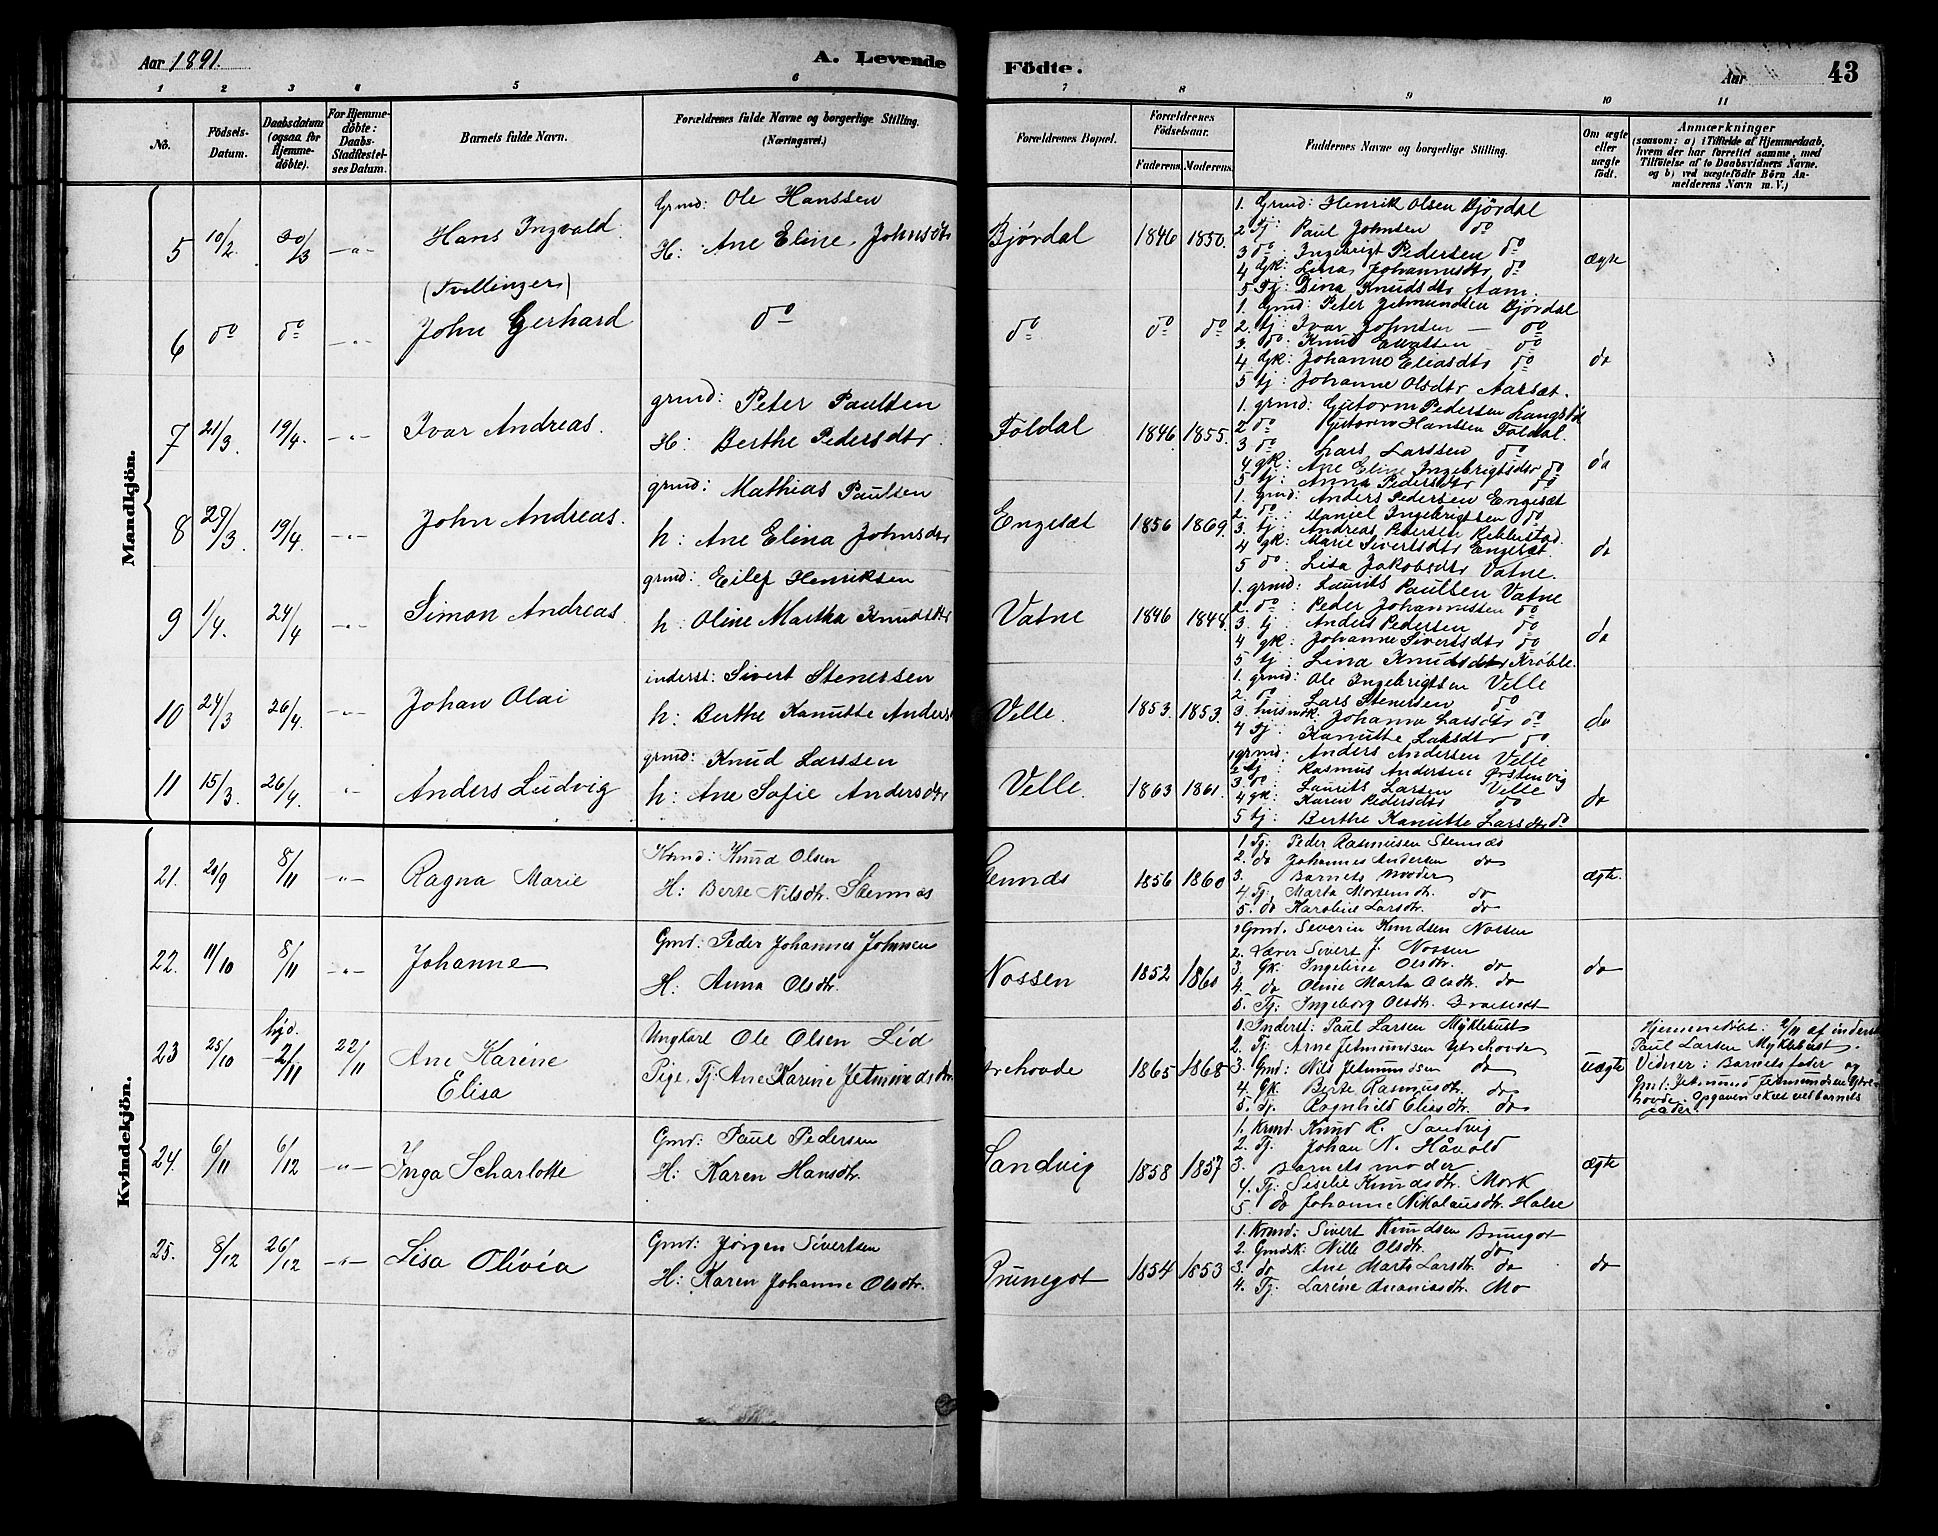 Aar 1891.
A. Levende Födte.
Aar
43
1 2 3 4 5 6 7 8 9 10 11
No.
Födsels-Datum.
Daabsdatum (ogsaa for Hjemmedöbte).
For Hjemmedöbte: Daabs-Stadfæstelses Datum.
Barnets fulde Navn.
Forældrenes fulde Navne og borgerlige Stilling. (Næringsvei.)
Forældrenes Bopæl.
Forældrenes Födselsaar.
Faderens. Moderens.
Faddernes Navne og borgerlige Stilling.
Om ægte eller uægte födt.
Anmærkninger
(saasom: a) i Tilfælde af Hjemmedaab, hvem der har forrettet samme, med Tilföielse af to Daabsvidners Navne, og b) ved uægtefödte Börn Anmelderens Navn m. V.)
Mandkjön.
5 10/2 30/3 -"- Hans Ingvald
(Tvillinger)
Grmd: Ole Hanssen
H: Ane Eline Johnsdtr
Bjørdal 1846 1850.
1. Grmd: Henrik Olsen Bjørdal
2 Tj: Paul Johnsen do
3 do: Ingebrigt Pedersen do
4 gk: Lina Johannesdtr do
5 Tj: Dina Knudsdtr Aam.
ægte
6 do do -"- John Gerhard
do
do do do
1. Grmd: Peter Jetmundsen Bjørdal
2. tj: Ivar Johnsen - do
3. do: Knud do
4 gk: Johanne Eliasdtr do
5 tj: Johanne Olsdtr Aarsæt.
do
7 21/3. 19/4. -"- Ivar Andreas.
grmd: Peter Paulsen
H: Berthe Pedersdtr.
Foldal 1846 1855.
1. grmd: Gutorm Pedersen
2 do Gutorm Hanssen Foldal.
3 do Lars Larssen do
4 gk: Ane Eline Ingebrigtsdtr do
5 tj: Anna Pedersdtr do
do
8 29/3. 19/4. -"- John Andreas.
grmd: Mathias Paulsen
h: Ane Elina Johnsdtr
Engesæt 1856 1869.
1. Grmd: Anders Pedersen Engesæt
2. do: Daniel Ingebrigtsen do
3. tj: Andreas Pedersen
4 gk: Marie Sivertsdtr Engesæt.
5 do: Lisa Jakobsdtr Vatne.
do
9 1/4. 24/4 -"- Simon Andreas.
grmd: Eilef Henriksen
h: Oline Martha Knudsdtr
Vatne 1846 1848.
1. grmd: Laurits Paulsen Vatne
2. do: Peder Johannessen do
3. tj: Anders Pedersen do
4 gk: Johanne Sivertsdtr do
5 tj: Lina Knudsdtr Krøble.
do
10 24/3 26/4. -"- Johan Olai
inderst: Sivert Stenersen
h: Berthe Kanutte Anders
Velle. 1853. 1853.
1. grmd: Ole Ingebrigtsen Velle
2. do: Lars Stenersen do
3. husmdk. Johanne Larsdtr do
4 Tj: Kanutte Larsdtr do
do
11 15/3. 26/4. "- Anders Ludvig
grmd: Knud Larssen
h: Ane Sofie Andersdtr
Velle. 1863 1861.
1 grmd: Anders Andersen Velle
2 tj: Rasmus Andersen Ørstenvig
3 do: Laurits Larsen Velle
4 gk: Karen Pedersdtr do
5 tj: Berthe Kanutte Larsdtr do
do
Kvindekjön.
21. 20/9 8/11 -"- Ragna Marie
Krmd: Knud Olsen
H: Berte Nilsdtr. Stennæs
1856 1860
1. Tj: Peder Rasmusen Stennæs
2. do Johannes Andersen do
3. Barnets moder
4 Tj: Marta Mortensdtr. do
5. do Karoline Larsdtr. do
ægte.
22. 11/10 8/11 -"- Johanne
Gmd: Peder Johannes Johnsen
H: Anna Olsdtr.
Nossen 1852 1860
1 Gmd. Severin Knudsen Nossen
2. Lærer Sivert J. Nossen
3. Gk. Ingeline Olsdtr. do
4. do Oline Marta Olsdtr. do
5. Tj: Ingeborg Olsdtr.
do
23 25/10 hjd. -2/11 22/11 Ane Karine
Elisa
Ungkarl Ole Olsen Lid
Pige, Tj: Ane Karine Jetmundsdtr.
1865 1868
1. Inderst: Paul Larsen Myklebust
2. Tj: Arne Jetmundsen Ytrehovde
3. Gmd: Nils Jetmundsen do
4. Gk Berte Rasmusdtr. do
5. Tj. Ragnhild Eliasdtr. do
uægte
Hjemmedöbt: 2/11 af inderst
Paul Larsen Myklebust.
Vidner: Barnets fader og
Gmd: Jetmund Jetmundsen Ytre-
hovde. Opgaven skeet ved barnets
fader.
24. 6/11 6/12 -"- Inga Scharlotte
Gmd: Paul Pedersen
H: Karen Hansdtr.
Sandvig 1858 1857
1. Krmd. Knud R. Sandvig
2. Tj: Johan N. Håvold
3. Barnets moder
4. Tj: Siselie Knudsdtr. Mork
5. do Johanne Nikolausdtr. Halse
ægte
25. 8/12 26/12 -"- Lisa Olivia
Gmd: Jørgen Sivertsen
H: Karen Johanne Olsdtr.
Brunegot 1854 1853
1. Krmd: Sivert Knudsen Brunegot
2. Gmdsk: Nille Olsdtr. do
3. do Ane Marte Larsdtr. do
4. Tj. Larine Ananiasdtr. Mo
do